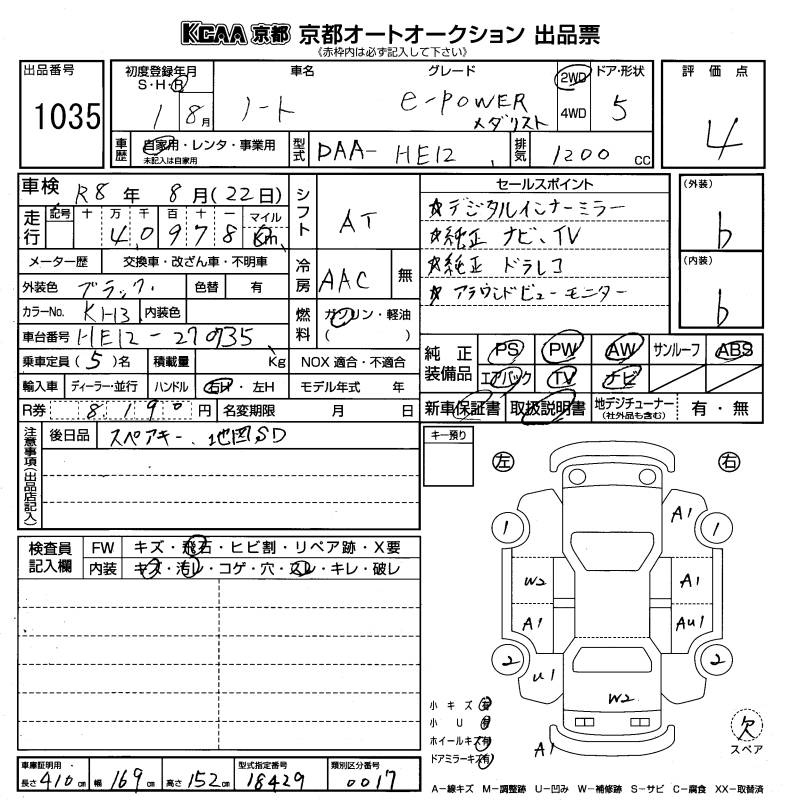 KCAA 京都 京都オートオークション 出品票
《赤枠内は必ず記入して下さい》
出品番号
1035
初度登録年月
S・H・R
1 8月
車名
ノート
グレード
e-POWER
メダリスト
2WD
4WD
ドア・形状
5
評価点
4
車歴
自家用・レンタ・事業用
未記入は自家用
型式
DAA-HE12
排気
1200 CC
車検 R8年 8月(22日)
走行
記号 十 万 千 百 十 一 マイル
4 0 9 7 8 Km
シフト
AT
セールスポイント
☆デジタルインナーミラー
☆純正 ナビ、TV
☆純正 ドラレコ
☆アラウンドビューモニター
(外装)
b
(内装)
b
メーター歴 交換車・改ざん車・不明車
冷房
AAC
無
外装色 ブラック 色替 有
カラーNo. KH3 内装色
燃料
ガソリン・軽油
( )
車台番号 HE12-270735
乗車定員(5)名 積載量 Kg
NOX 適合・不適合
輸入車 ディーラー・並行 ハンドル 右H・左H
モデル年式 年
R券 8190円
名変期限 月 日
純正装備品
PS PW AW サンルーフ ABS
エアバック TV ナビ
新車保証書 取扱説明書 地デジチューナー(社外品も含む) 有・無
注意事項(出品店記入)
後日品 スペアキー、地図SD
キー預り
左
右
検査員記入欄
FW キズ・飛石・ヒビ割・リペア跡・X要
内装 キズ・汚レ・コゲ・穴・スレ・キレ・破レ
A1
1 1
W2 A1
A1 AU1
2 2
U1
W2
A1
小キズ有
小 U 有
ホイールキズ有
ドアミラーキズ有
欠
スペア
車庫証明用・
長さ 410cm 幅 169cm 高さ 152cm
型式指定番号
18429
類別区分番号
0017
A－線キズ M－調整跡 U－凹み W－補修跡 S－サビ C－腐食 XX－取替済